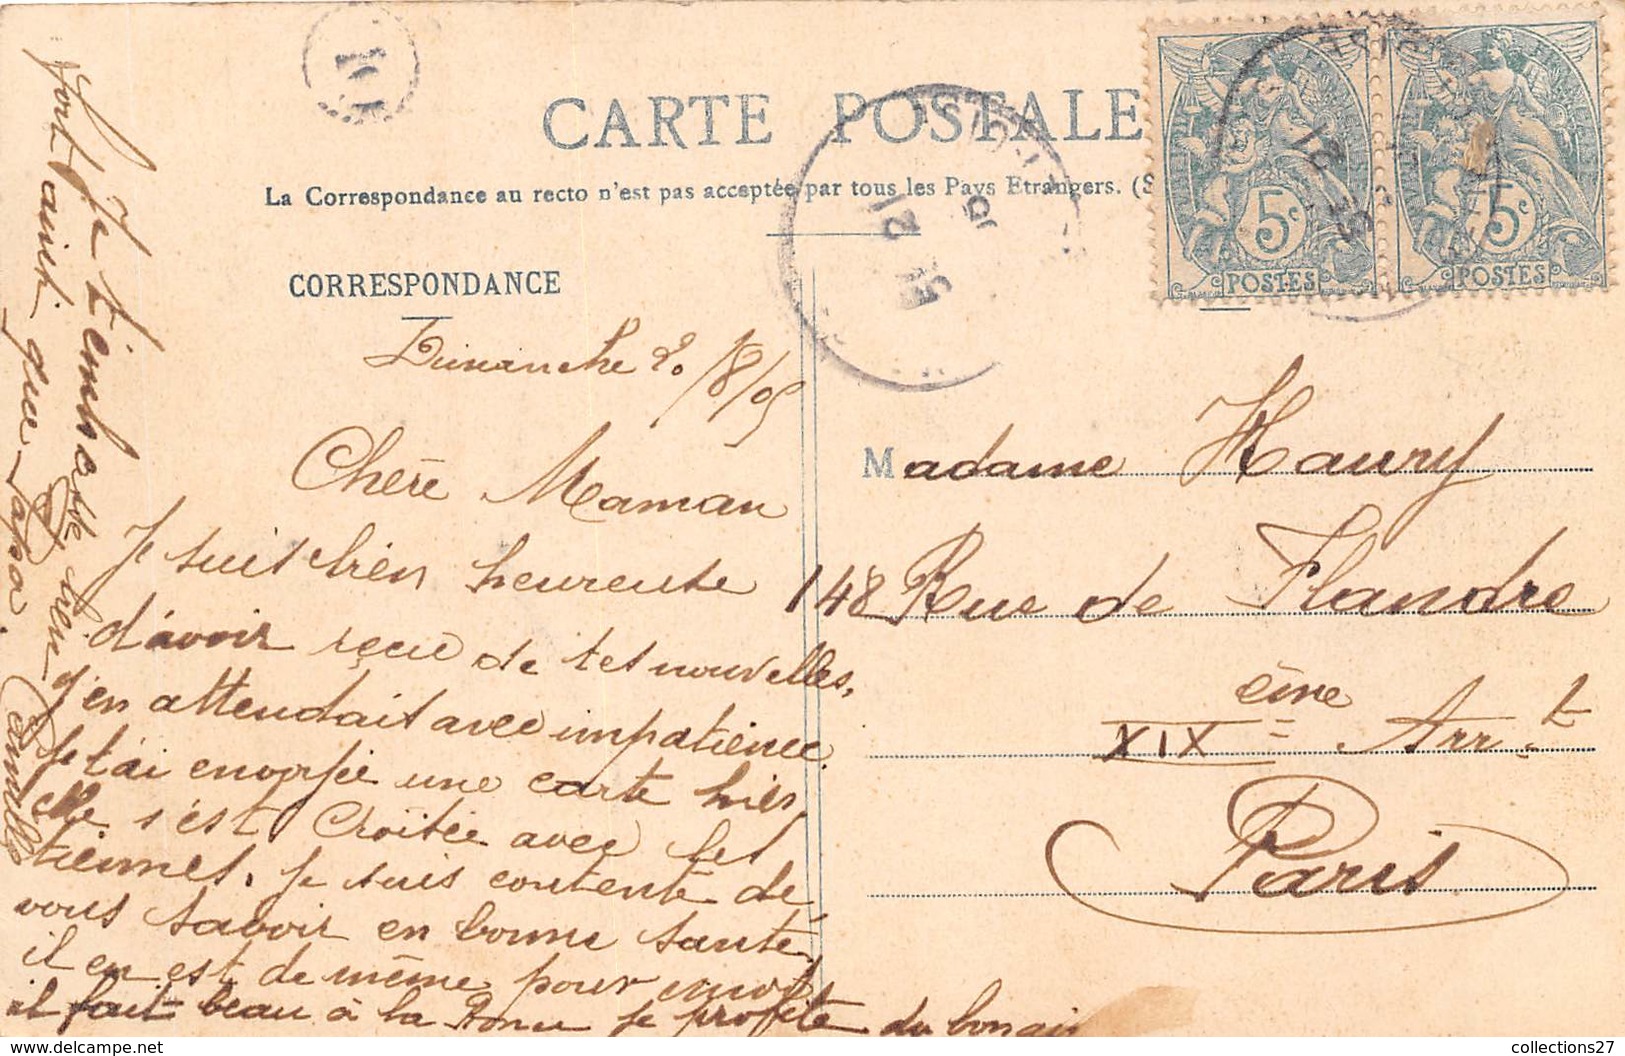 CARTE POSTALE
La Correspondance au recto n'est pas acceptée par tous les Pays Etrangers. (S
CORRESPONDANCE
Dimanche 20/8/05
Chère Maman
Je suis bien heureuse
d'avoir reçue de tes nouvelles,
j'en attendait avec impatience.
Je t'ai envoyée une carte hier,
elle s'est croîtée avec les
tiennes. Je suis contente de
vous savoir en bonne santé,
il en est de même pour moi
il fait beau à la je profite du bon air
Je t'embrasse bien
fort ainsi que papa.
Camille
Madame Haury
148 Rue de Flandre
XIX ème Arr.t
Paris
5c
POSTES
5c
POSTES
21
21
collections27